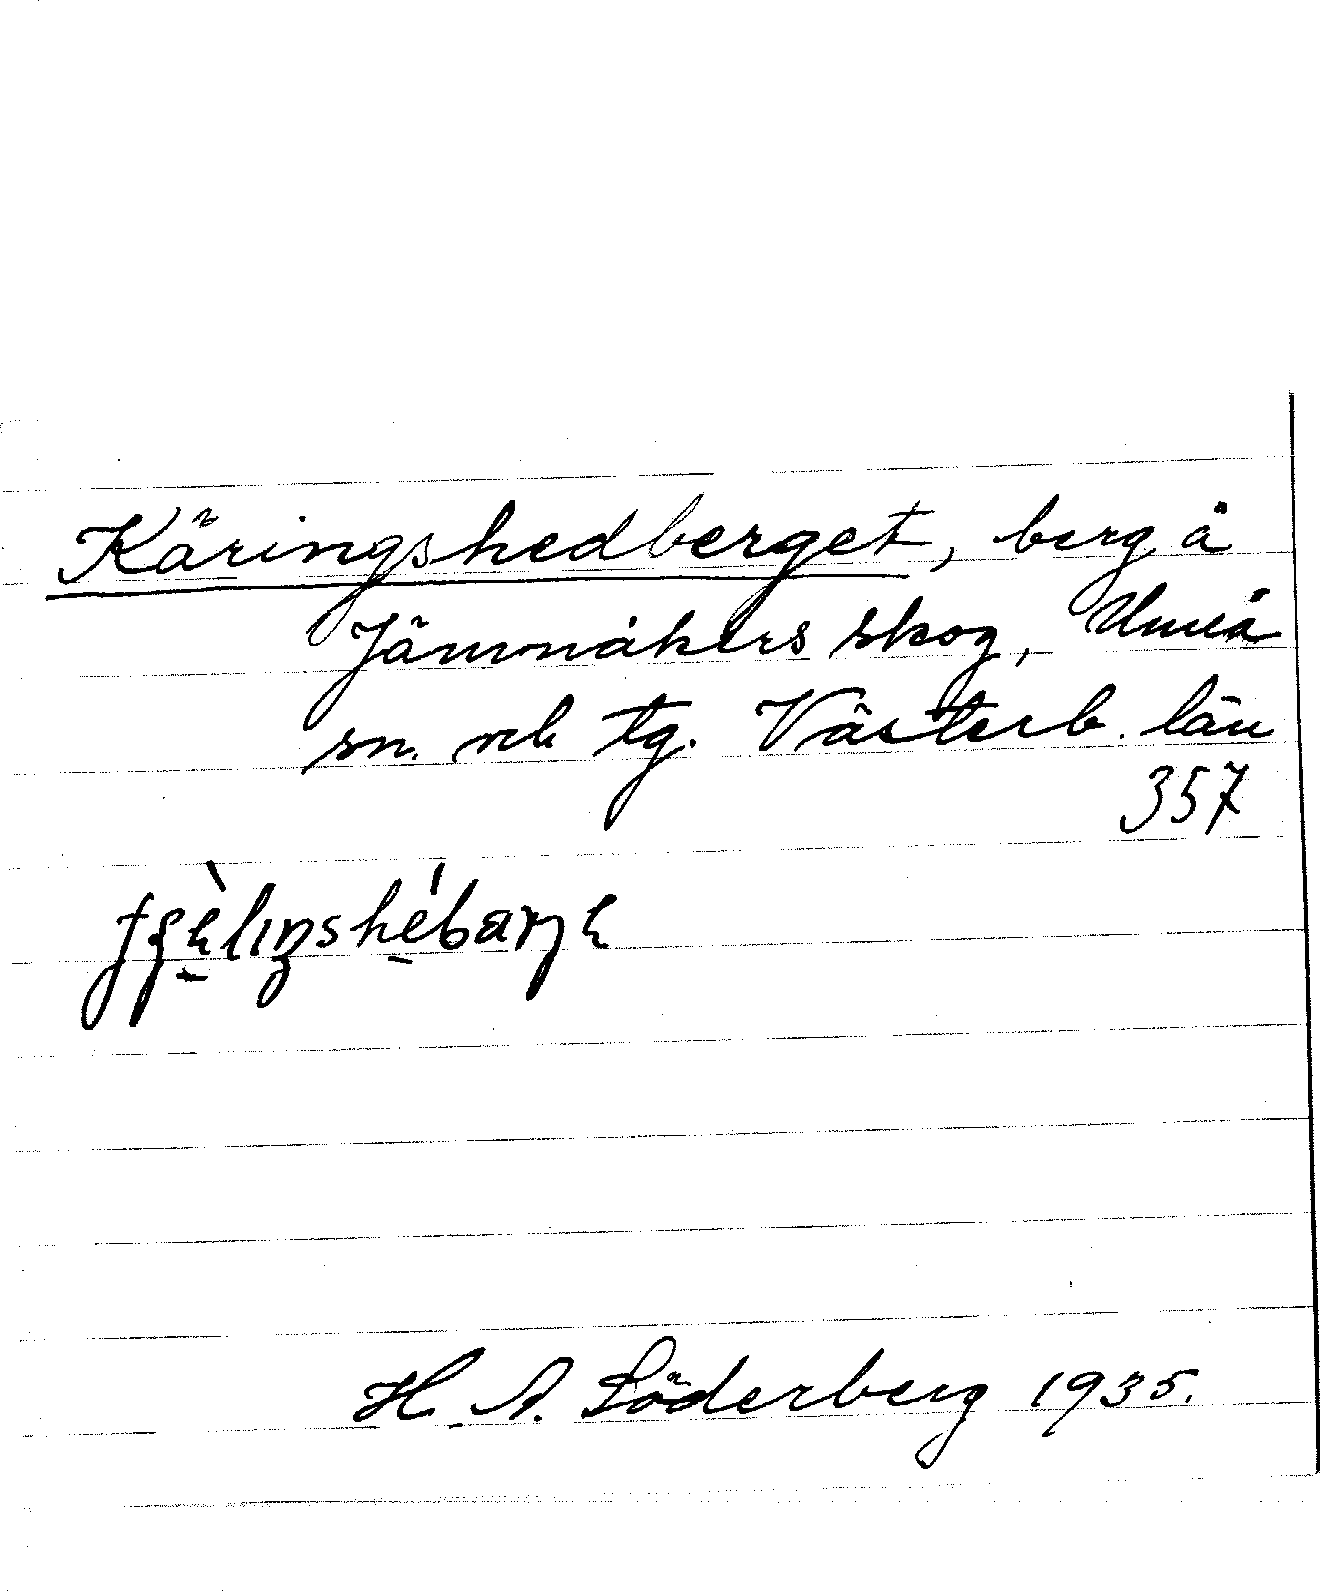 Käringshedberget, berg å
Jämnåkers skog, Umeå
sn. och tg. Västerb. län
357
H A. Söderberg 1935.